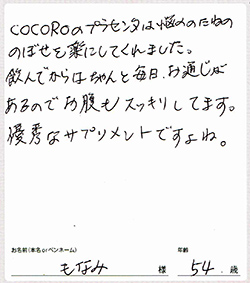 COCOROのプラセンタは悩みのたねの
のぼせを楽にしてくれました。
飲んでからはちゃんと毎日、お通じが
あるのでお腹もスッキリしてます。
優秀なサプリメントですよね。
お名前(本名orペンネーム) 年齢
もなみ 様 54 歳